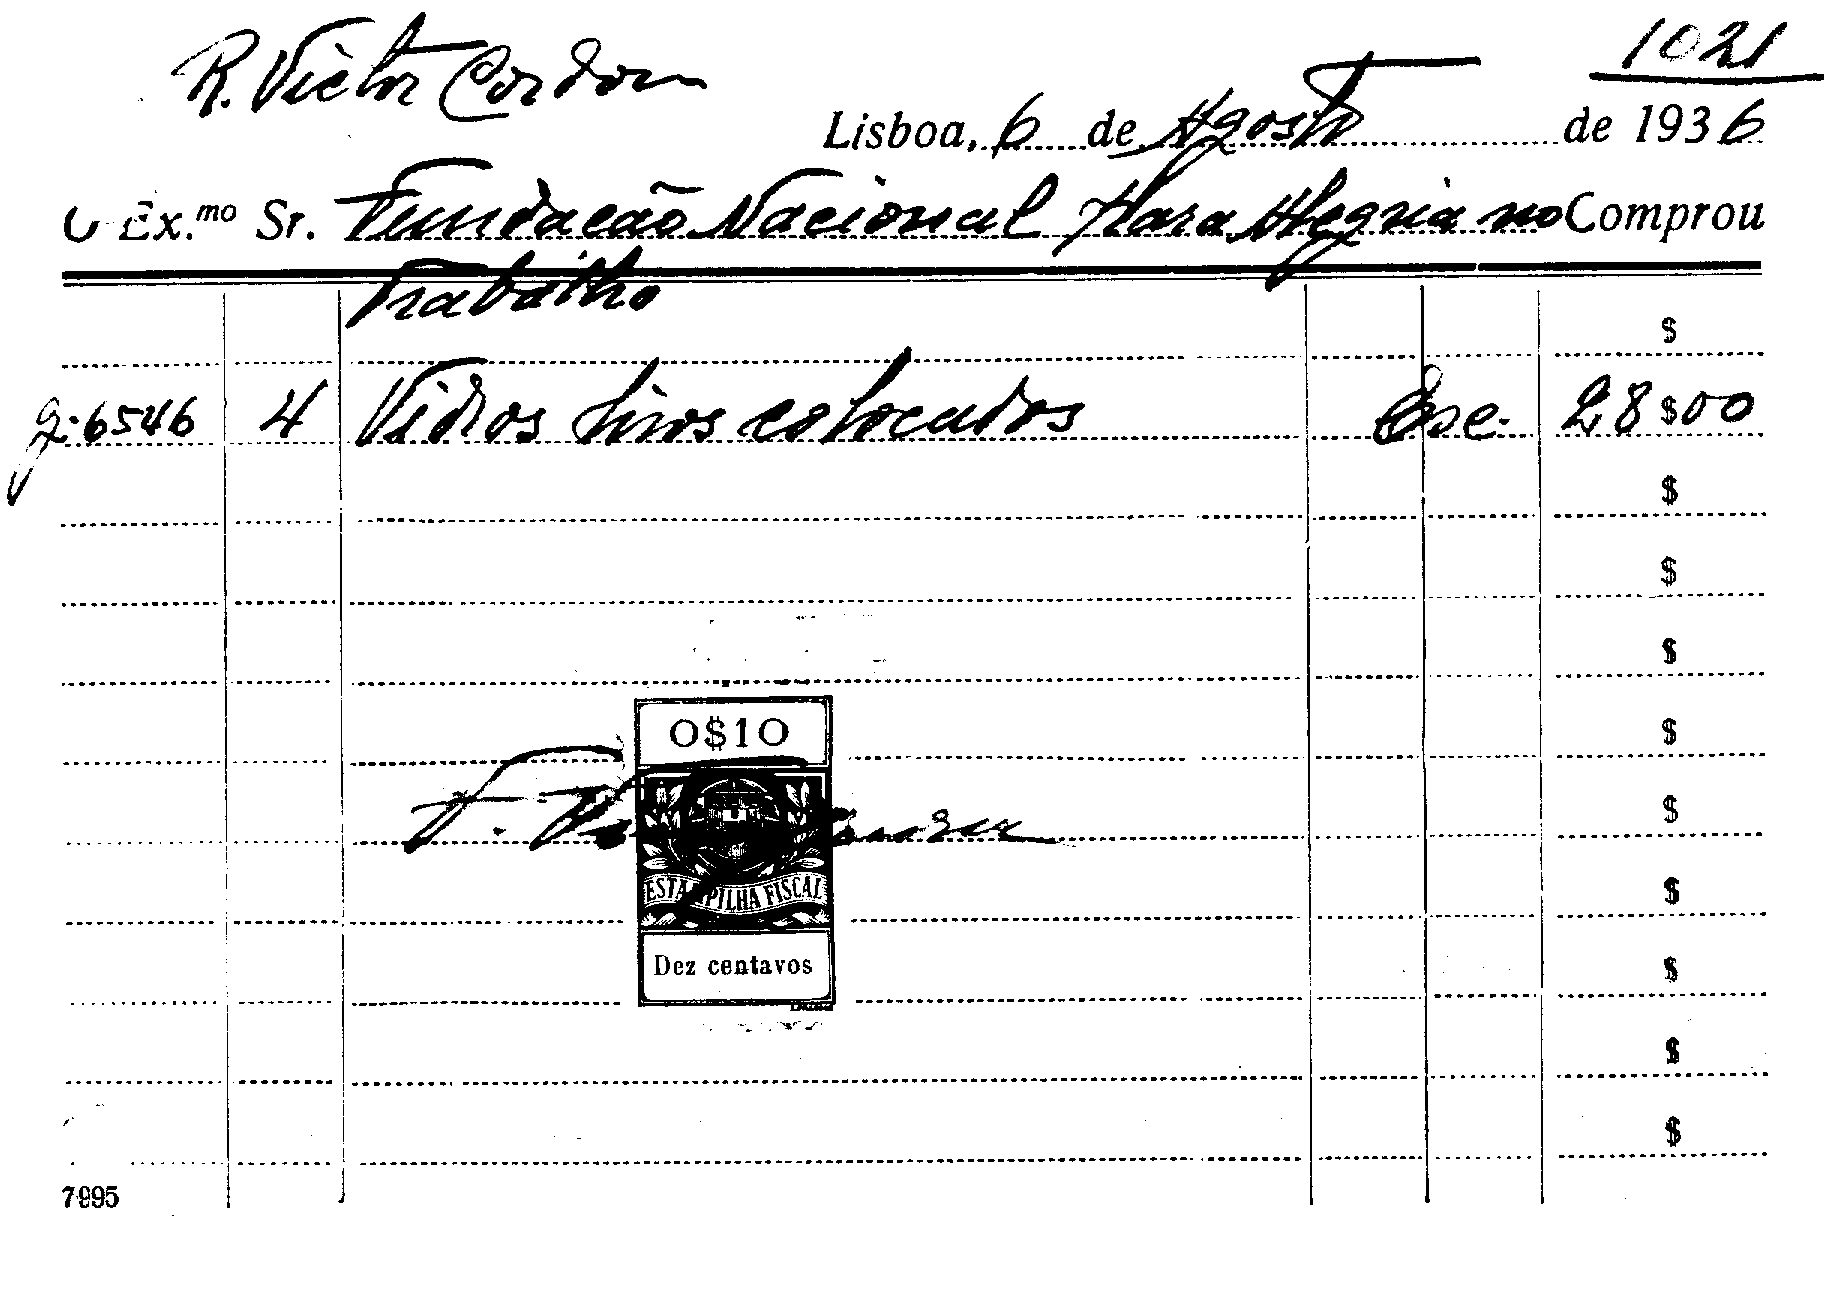 R. Victor Cordon
1021
Lisboa, 6 de Agosto de 1936
O Ex.mo Sr. Fundação Nacional para Alegria no Comprou
Trabalho
$
g. 6546 4 Vidros lisos colocados Esc. 28$00
$
$
$
$
$
$
$
$
$
0$10
ESTAMPILHA FISCAL
Dez centavos
7995